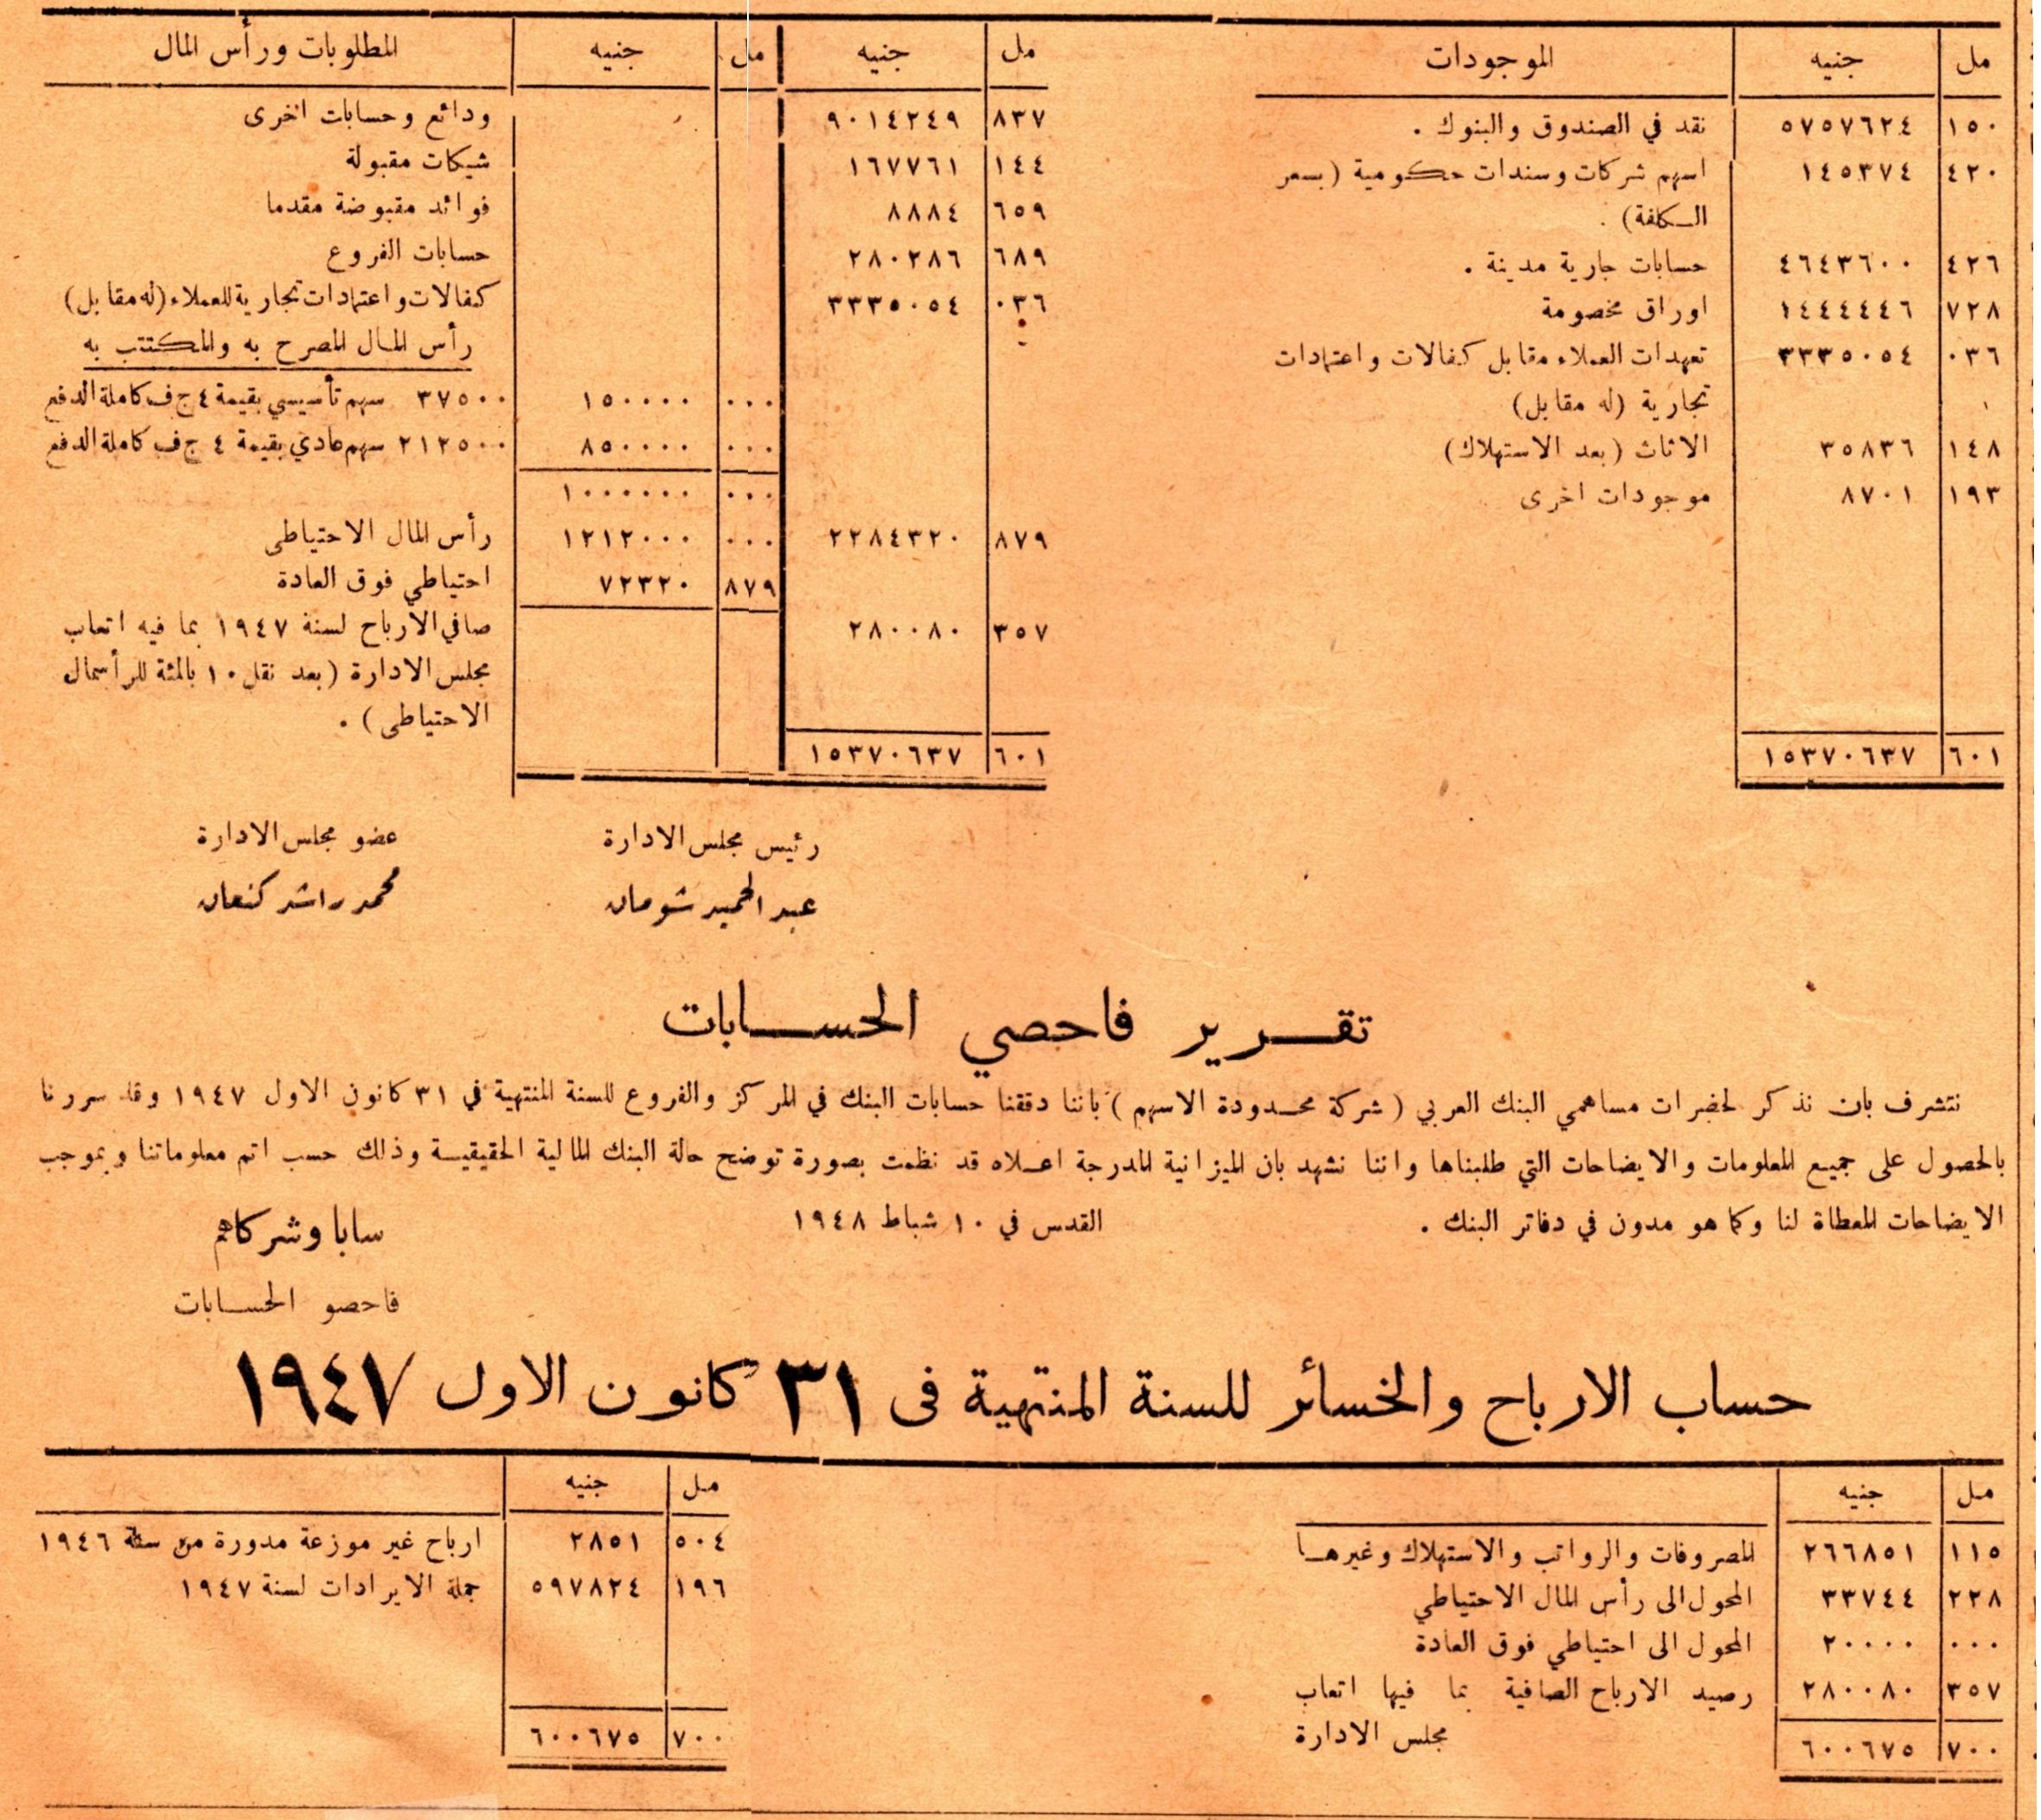 مل جنيه الموجودات
١٥٠ ٥٧٥٧٦٢٤ نقد في الصندوق والبنوك .
٤٢٠ ١٤٥٣٧٤ اسهم شركات وسندات حكومية (بسعر
الكلفة) .
٤٢٦ ٤٦٤٣٦٠٠ حسابات جارية مدينة .
٧٢٨ ١٤٤٤٤٤٦ اوراق مخصومة
٠٣٦ ٣٣٣٥٠٥٤ تعهدات العملاء مقابل كفالات واعتمادات
تجارية (له مقابل)
١٤٨ ٣٥٨٣٦ الاثاث (بعد الاستهلاك)
١٩٣ ٨٧٠١ موجودات اخرى
٦٠١ ١٥٣٧٠٦٣٧
مل جنيه مل جنيه المطلوبات ورأس المال
٨٣٧ ٩٠١٤٢٤٩ ودائع وحسابات اخرى
١٤٤ ١٦٧٧٦١ شيكات مقبولة
٦٥٩ ٨٨٨٤ فوائد مقبوضة مقدما
٦٨٩ ٢٨٠٢٨٦ حسابات الفروع
٠٣٦ ٣٣٣٥٠٥٤ كفالات واعتمادات تجارية للعملاء (له مقابل)
رأس المال المصرح به والمكتتب به
٠٠٠ ١٥٠٠٠٠ ٣٧٥٠٠ سهم تأسيسي بقيمة ٤ ج ف كاملة الدفع
٠٠٠ ٨٥٠٠٠٠ ٢١٢٥٠٠ سهم عادي بقيمة ٤ ج ف كاملة الدفع
٠٠٠ ١٠٠٠٠٠٠
٨٧٩ ٢٢٨٤٣٢٠ ٠٠٠ ١٢١٢٠٠٠ رأس المال الاحتياطى
٨٧٩ ٧٢٣٢٠ احتياطي فوق العادة
٣٥٧ ٢٨٠٠٨٠ صافي الارباح لسنة ١٩٤٧ بما فيه اتعاب
مجلس الادارة (بعد نقل ١٠ بالمئة للرأسمال
الاحتياطى) .
٦٠١ ١٥٣٧٠٦٣٧
رئيس مجلس الادارة
عبد الحميد شومان
عضو مجلس الادارة
محمد راشد كنعان
تقرير فاحصي الحسابات
نتشرف بان نذكر لحضرات مساهمي البنك العربي ( شركة محدودة الاسهم ) باننا دققنا حسابات البنك في المركز والفروع للسنة المنتهية في ٣١ كانون الاول ١٩٤٧ وقد سررنا
بالحصول على جميع المعلومات والايضاحات التي طلبناها واننا نشهد بان الميزانية المدرجة اعلاه قد نظمت بصورة توضح حالة البنك المالية الحقيقية وذلك حسب اتم معلوماتنا وبموجب
الايضاحات المعطاة لنا وكما هو مدون في دفاتر البنك . القدس في ١٠ شباط ١٩٤٨
سابا وشركاهم
فاحصو الحسابات
حساب الارباح والخسائر للسنة المنتهية فى ٣١ كانون الاول ١٩٤٧
مل جنيه
١١٥ ٢٦٦٨٥١ المصروفات والرواتب والاستهلاك وغيرها
٢٢٨ ٣٣٧٤٤ المحول الى رأس المال الاحتياطي
٠٠٠ ٢٠٠٠٠ المحول الى احتياطي فوق العادة
٣٥٧ ٢٨٠٠٨٠ رصيد الارباح الصافية بما فيها اتعاب
مجلس الادارة
٧٠٠ ٦٠٠٦٧٥
مل جنيه
٥٠٤ ٢٨٥١ ارباح غير موزعة مدورة من سنة ١٩٤٦
١٩٦ ٥٩٧٨٢٤ جملة الايرادات لسنة ١٩٤٧
٧٠٠ ٦٠٠٦٧٥